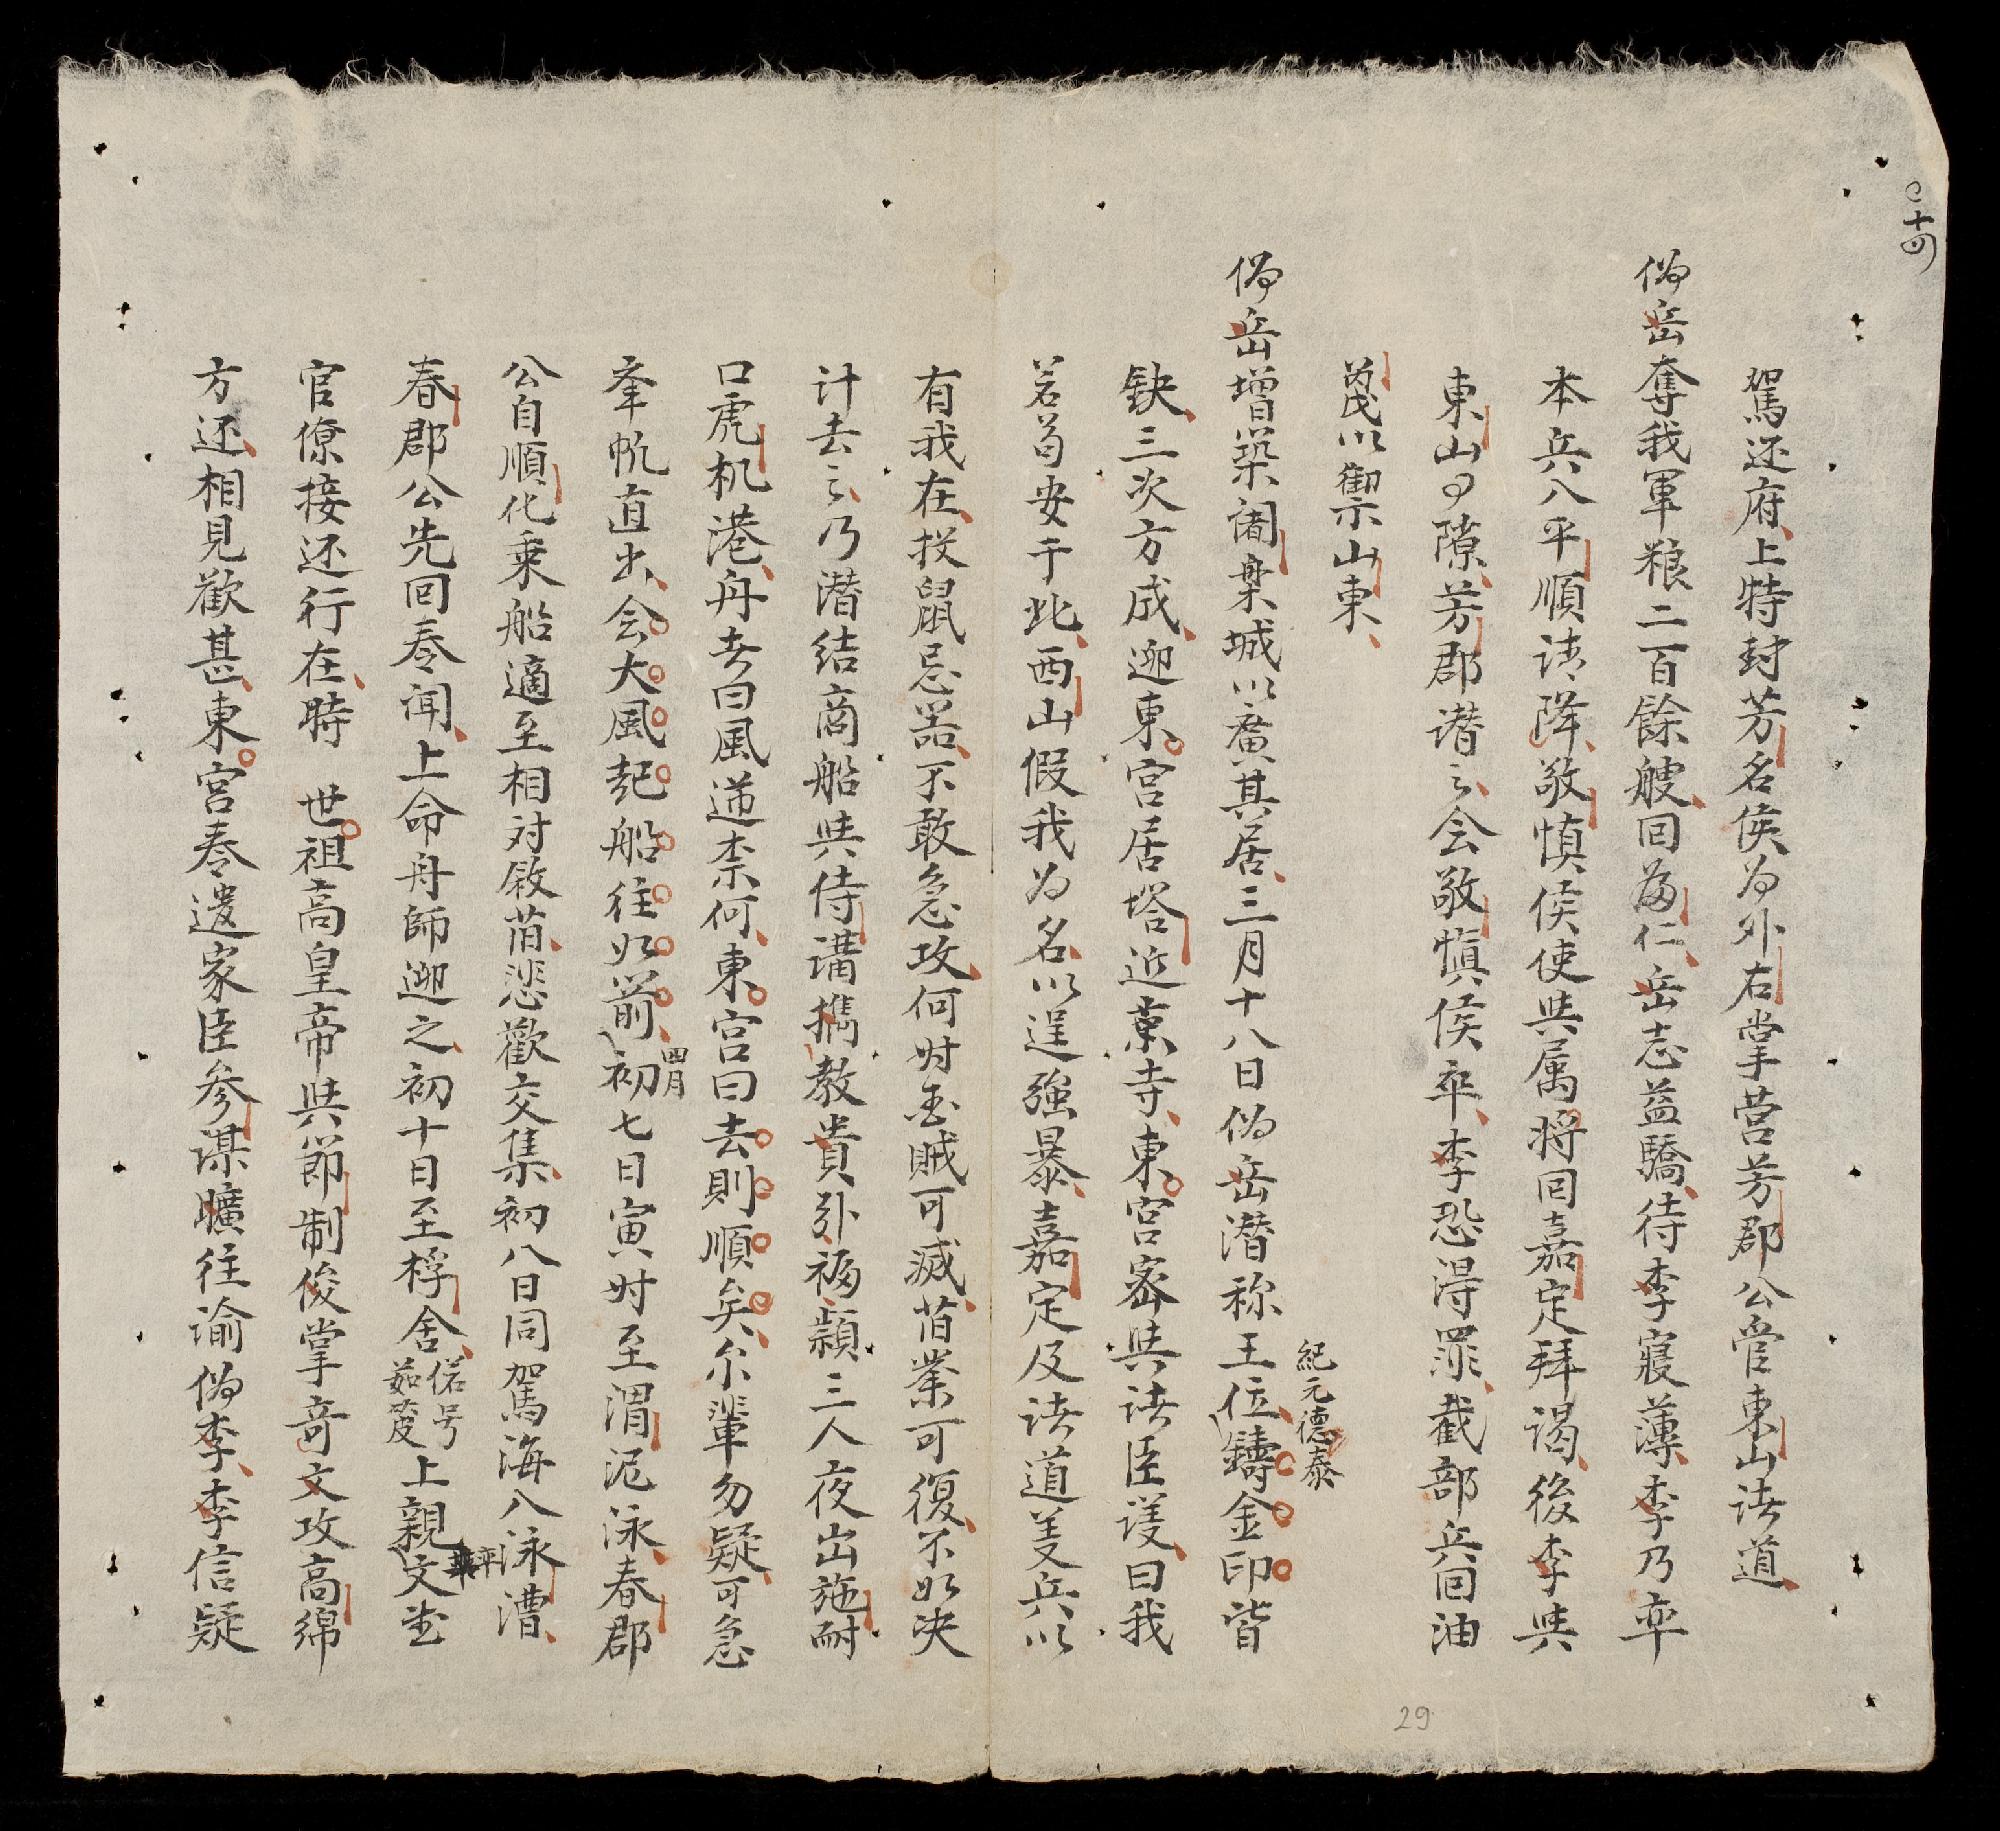 駕还府上特封芳名侯为外右掌营芳郡公管東山诸道
偽岳奪我軍粮二百餘艘回為仁岳志益驕待李寝薄李乃率
本兵入平順請降敬慎侯使與属将同嘉定拜谒後李與
東山有隙芳郡潜之会敬慎侯卒李恐得罪截部兵回油
茂以禦山東
偽岳增築阇槃城以廣其居三月十八日偽岳潜称王位鑄金印皆
紀元德泰
缺三次方成迎東宮居塔近葉寺東宮密與诸臣議曰我
若苟安于此西山假我为名以逞強暴嘉定及诸道義兵以
有我在投鼠忌器不敢急攻何时賊可滅旧業可復不如决
计去之乃潜结商船與侍講攜教貴引福顯三人夜出施耐
口虎机港舟者曰風逆柰何東宮曰去則順矣尔輩勿疑可急
牽帆直出会大風起船往如前初七日寅时至渭泥泳春郡
四月
公自順化乗船適至相对敘旧悲歡交集初八日同駕海入泳漕
春郡公先回奏闻上命舟師迎之初十日至桴舍俗号茹笈上親率文武
官僚接还行在時 世祖高皇帝與節制俊掌奇文攻高綿
方还相見歡甚東宮奏遣家臣参谋曠往谕偽李李信疑
29